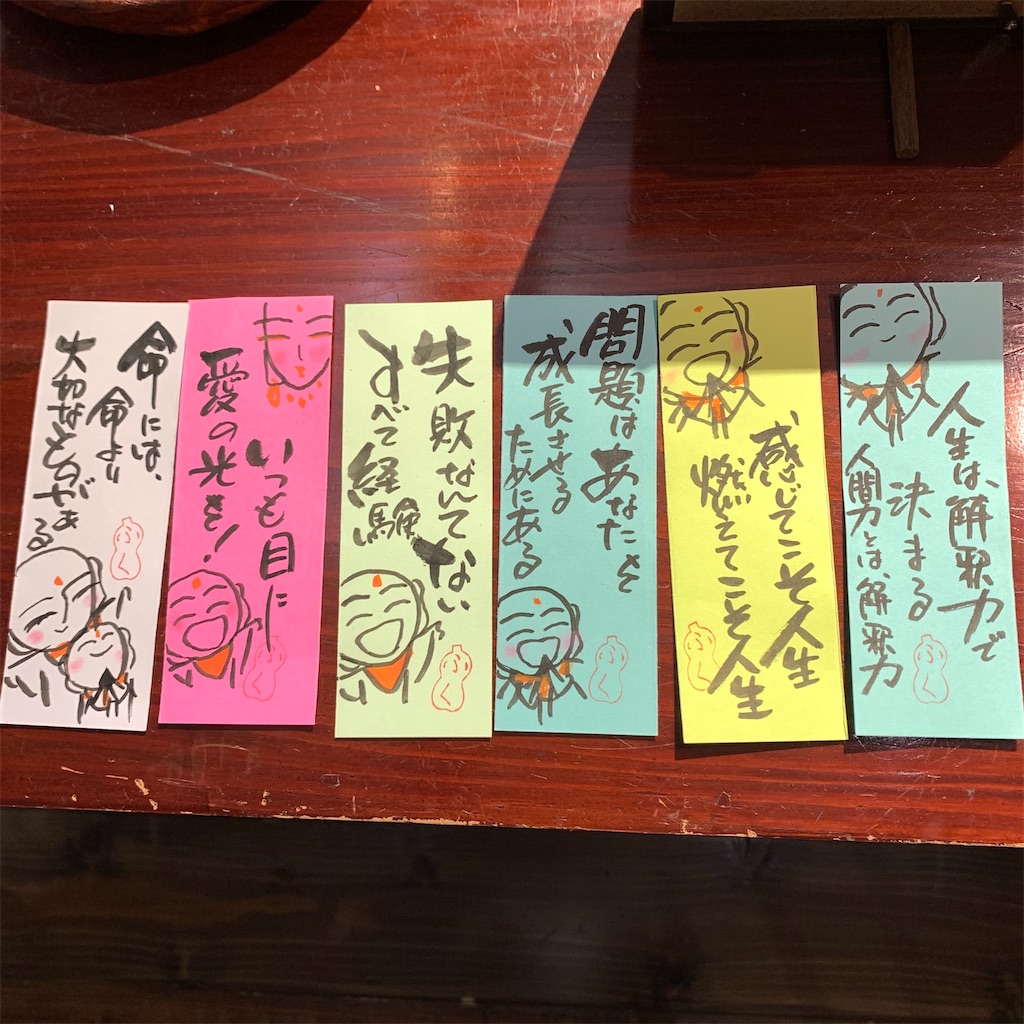 人生は、解釈力で
決まる
人間力とは、解釈力
感じてこそ人生
燃えてこそ人生
問題はあなたを
成長させる
ためにある
失敗なんてない
すべて経験
いつも目に
愛の光を!
命には、
命より
大切なものがある